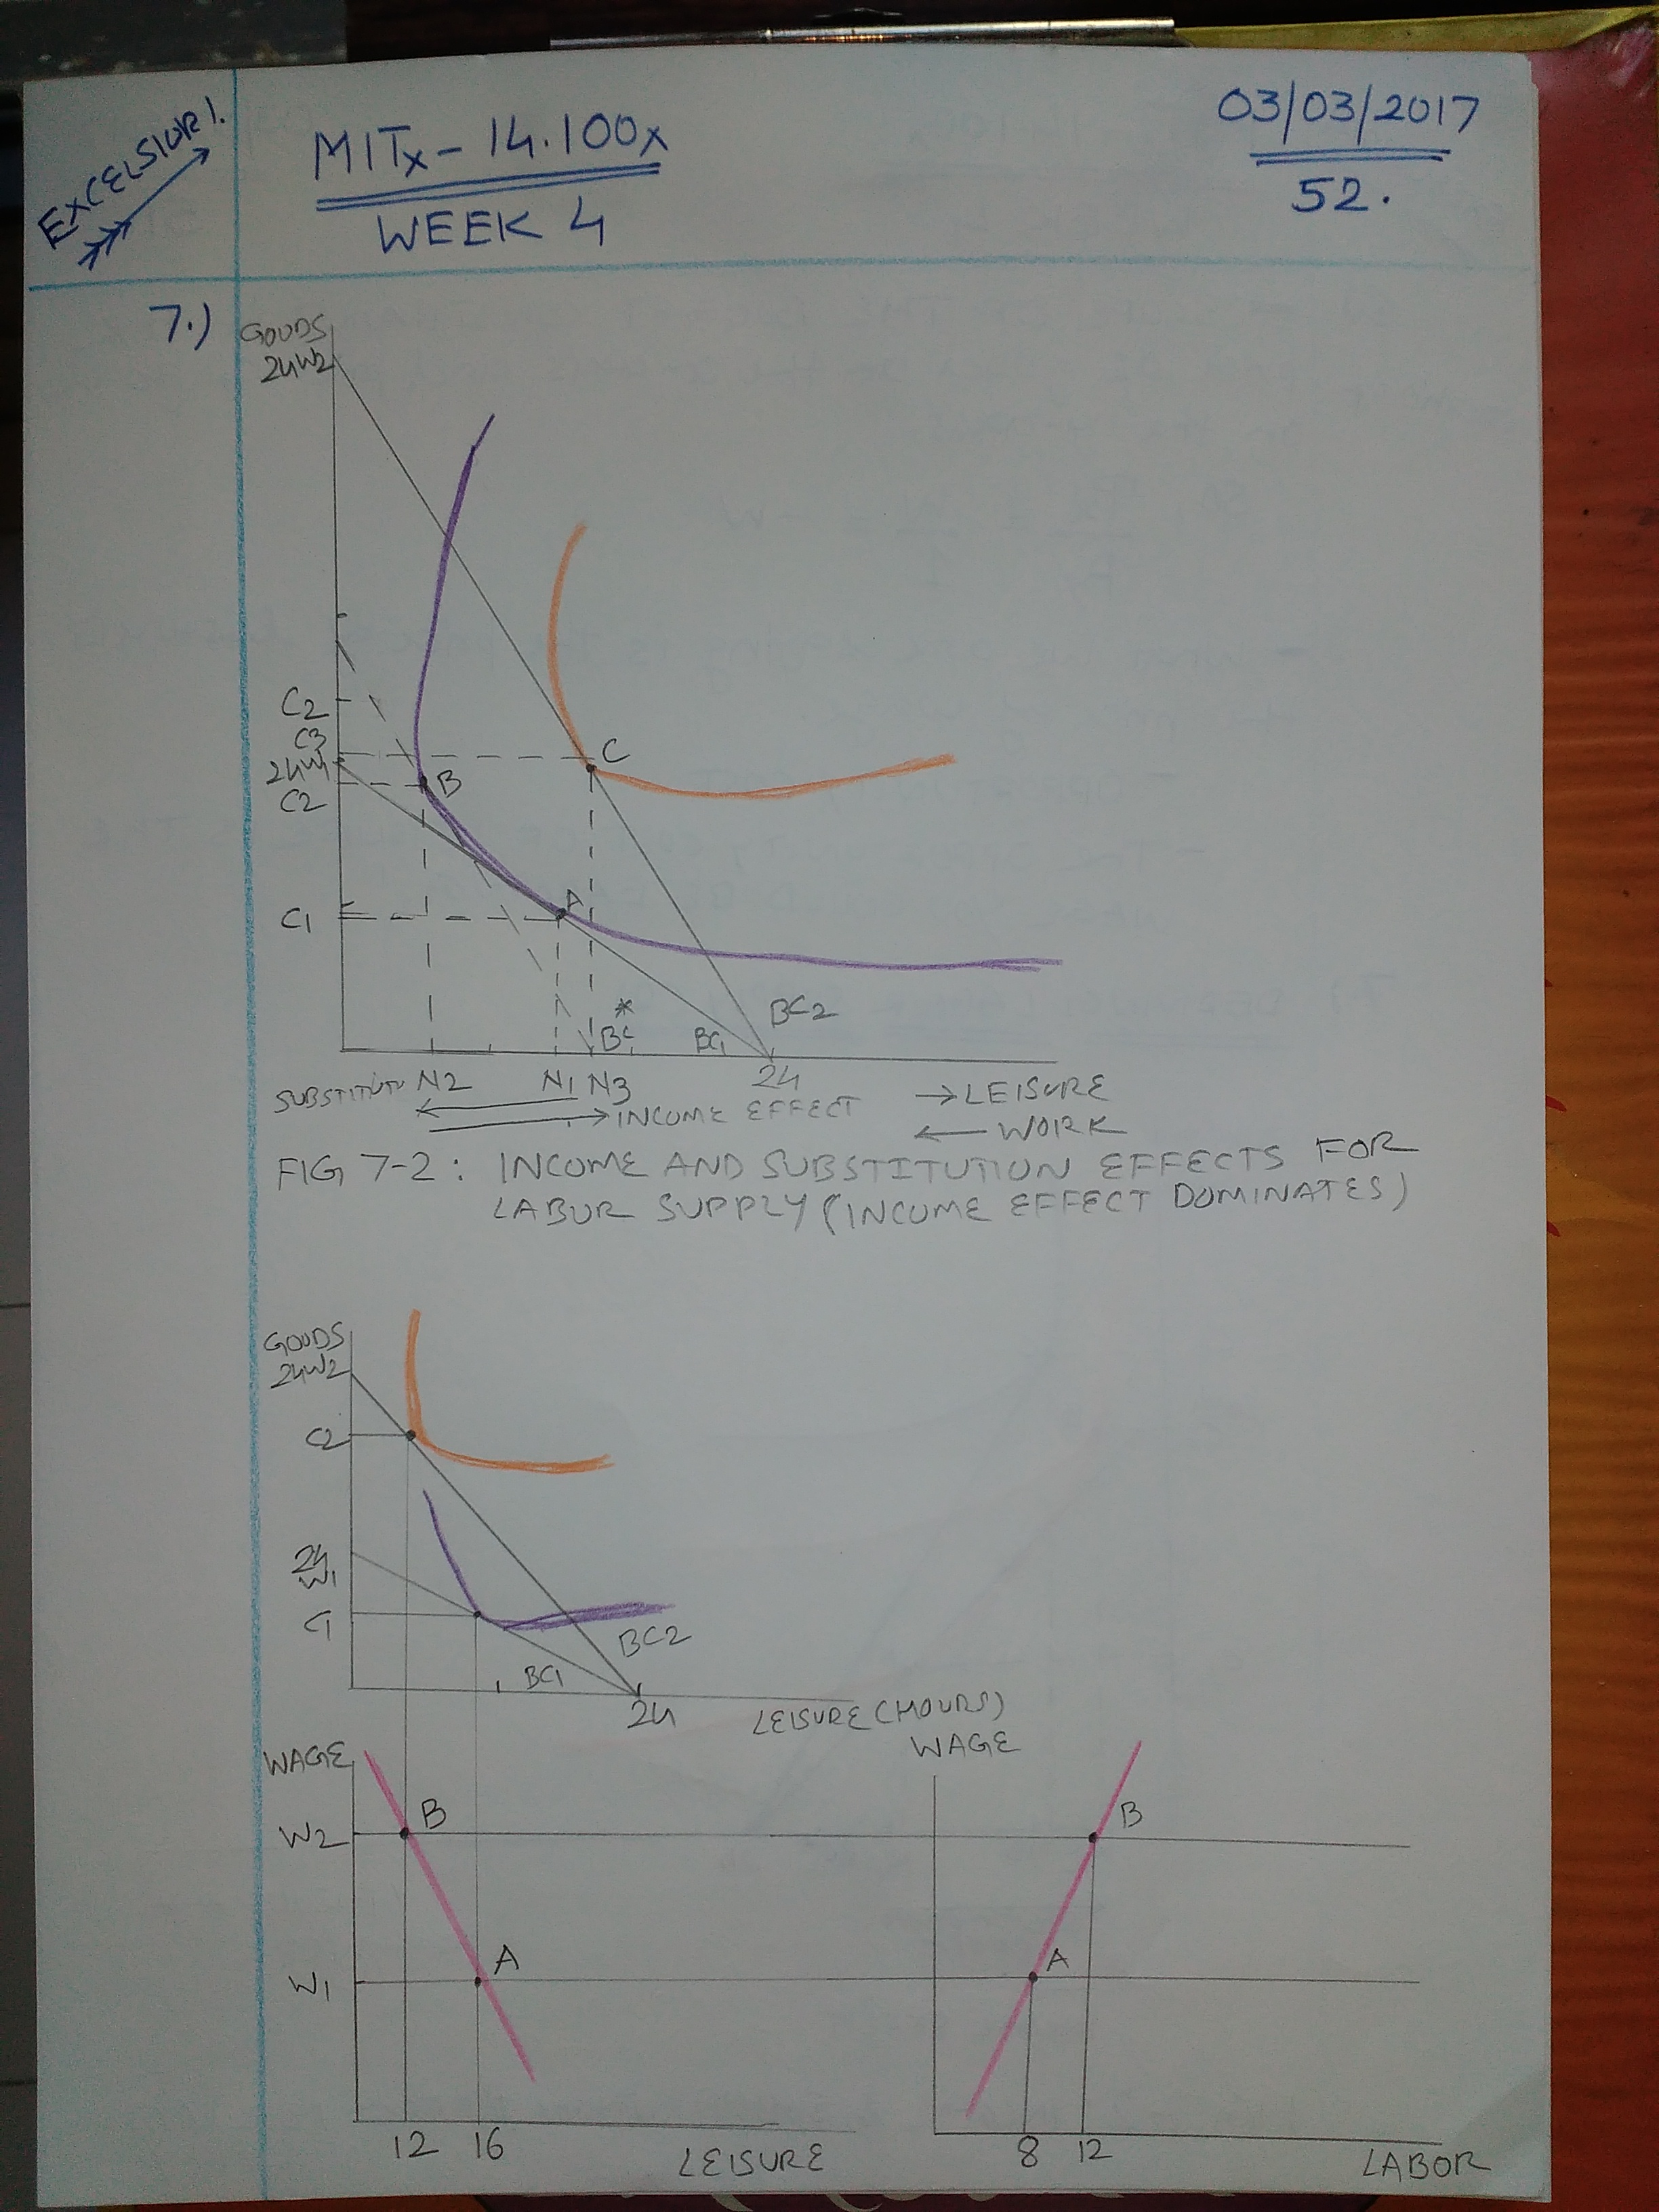 EXCELSIOR!
MITx - 14.100x
WEEK 4
03/03/2017
52.
7.)
GOODS
24W2
C2
C3
24W1
C2
C1
B
C
A
*
BC
BC1
BC2
N2
N1
N3
24
→ LEISURE
← WORK
→ INCOME EFFECT
FIG 7-2: INCOME AND SUBSTITUTION EFFECTS FOR
LABOR SUPPLY (INCOME EFFECT DOMINATES)
GOODS
24W2
C2
24
W1
C1
BC2
BC1
24
LEISURE (HOURS)
WAGE
W2
W1
B
A
12 16
LEISURE
WAGE
B
A
8 12
LABOR